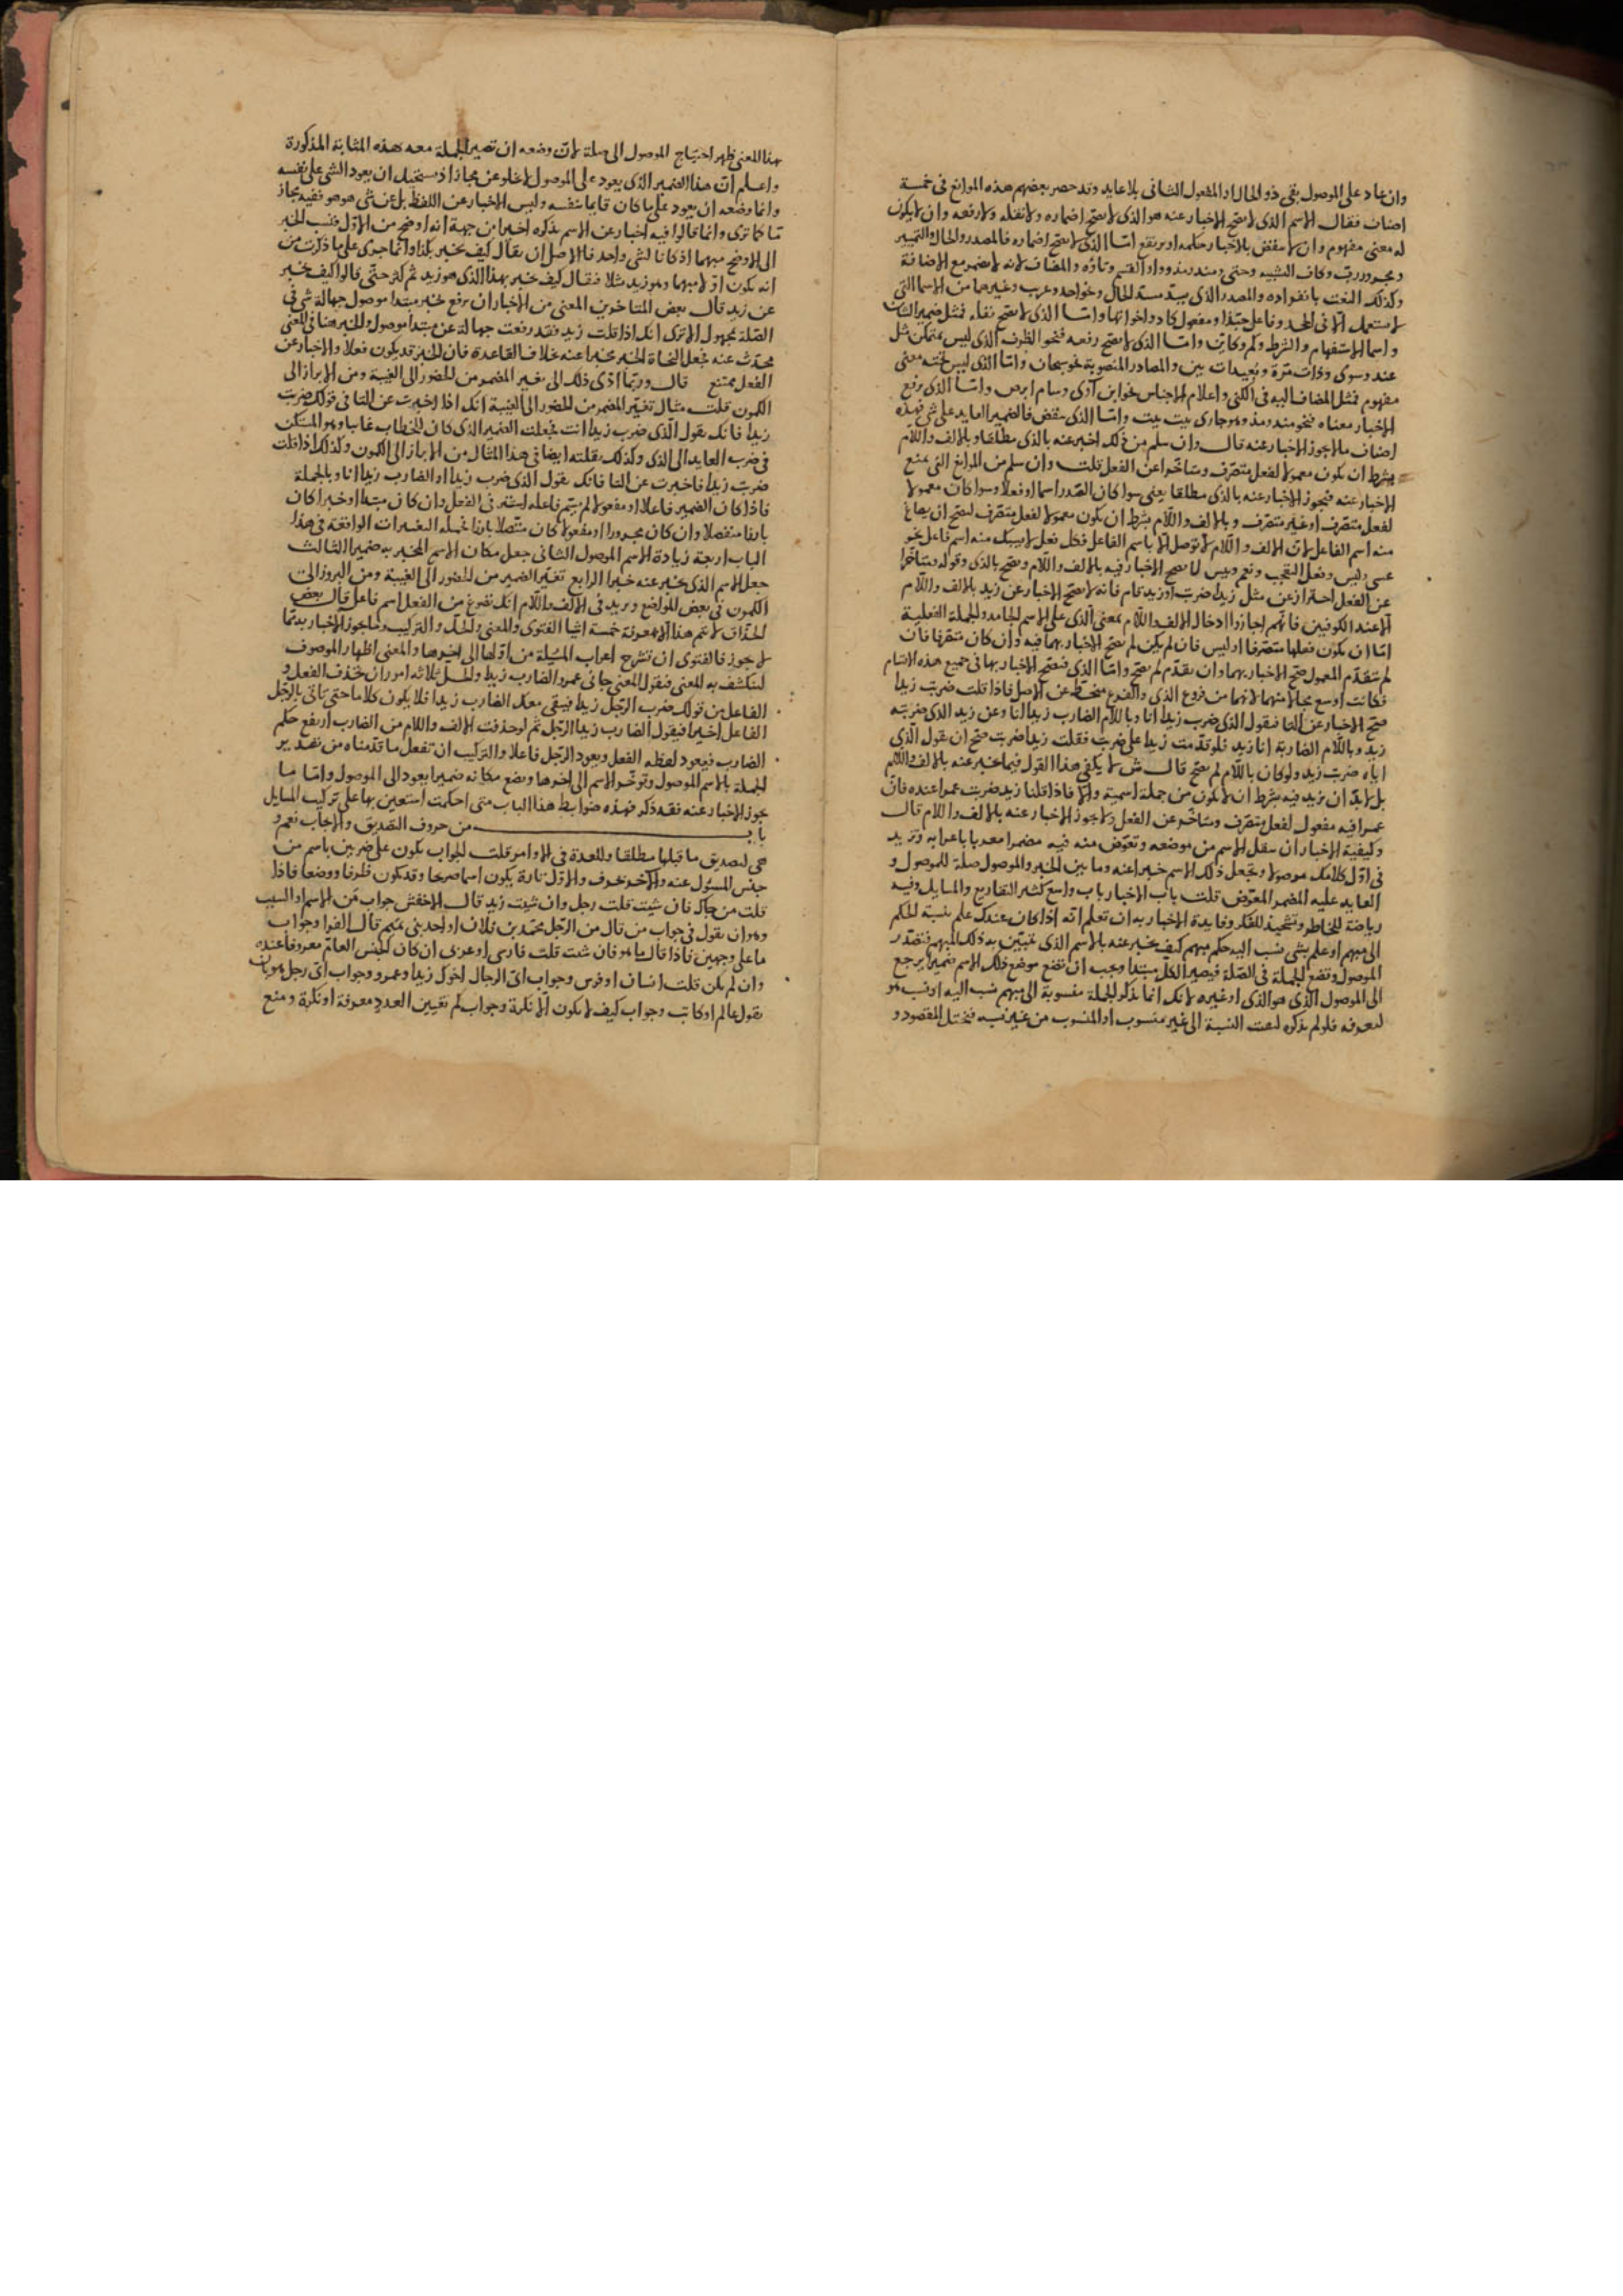 وان عاد على الموصول بقى ذو الحال او المفعول الثانى بلا عايد وقد حصر بعضهم هذه الموانع فى خمسة
اصناف فقال الاسم الذى لا يصح الاخبار عنه هو الذى لا يصح اضماره ولا نقله ولا رفعه وان لا يكون
له معنى مفهوم وان لا ينقض بالاخبار حكمه او يرتفع امّا الذى لا يصح اضماره فالمصدر والحال والتمييز
ومجرور ربّ وكاف التشبيه وحتى ومنذ ومذ وواو القسم وتاؤه والمضاف لانه لا يضمر مع الاضافة
وكذلك النعت بانفراده والمصدر الذى يسدّ مسدّ الحال وغيرها من الاسما التى
لا تستعمل الّا فى الجحد وفاعل حبّذا ومفعول كاد واخواتها وامّا الذى لا يصح نقله فمثل ضمير الشان
واسما الاستفهام والشرط وكم وكاين وامّا الذى لا يصح رفعه فنحو الظرف الذى ليس بمتمكن مثل
عند وسوى وذات مرّة وبعيدات بين والمصادر المنصوبة نحو سبحان وامّا الذى ليس تحته معنى
مفهوم فمثل المضاف اليه فى الكنى واعلام الاجناس نحو ابن آوى وسام ابرص وامّا الذى يرفع
الاخبار معناه فنحو منذ ومذ وهو جارى بيت بيت وامّا الذى ينقض فالضمير العايد على شى فهذه
اصناف ما لا يجوز الاخبار عنه قال وان سلم من ذلك اخبر عنه بالذى مطلقا وبالالف واللام
بشرط ان يكون معمولا لفعل متصرّف ومتأخّرا عن الفعل قلت وان سلم من الموانع التى تمنع
الاخبار عنه فيجوز الاخبار عنه بالذى مطلقا يعنى سوا كان الصّدر اسما او فعلا وسوا كان معمولا
لفعل متصرّف او غير متصرّف وبالالف واللام بشرط ان يكون معمولا لفعل متصرّف ليصح ان يصاغ
منه اسم الفاعل لانّ الالف واللام لا توصل الّا باسم الفاعل فكل فعل لا يسبك منه اسم فاعل نحو
عسى وليس وفعل التعجب ونعم وبيس لا يصح الاخبار فيه بالالف واللام ويصح بالذى وقوله ومتأخّرا
عن الفعل احتراز عن مثل زيدا ضربت او زيد قام فانه لا يصح الاخبار عن زيد بالالف واللام
الّا عند الكوفيين فانّهم اجازوا ادخال الالف واللام بمعنى الذى على الاسم الجامد والجملة الفعلية
امّا ان يكون فعلها متصرّفا او ليس فان لم يكن لم يصح الاخبار بهما فيه وان كان متصرّفا فان
لم يتقدّم المعمول صحّ الاخبار بهما وان تقدّم لم يصح وامّا الذى فيصح الاخبار بها فى جميع هذه الاقسام
فكانت اوسع مجالا منهما لانهما من فروع الذى والفرع منحطّ عن الاصل فاذا قلت ضربت زيدا
صحّ الاخبار عن التا فيقول الذى ضرب زيدا انا وباللام الضارب زيدا انا وعن زيد الذى ضربته
زيد وباللام الضاربه انا زيد فلو قدّمت زيدا على ضربت فقلت زيدا ضربت صحّ ان يقول الذى
اياه ضربت زيد ولو كان باللام لم يصح قال ش لا يكفى هذا القول فيما يخبر عنه بالالف واللام
بل لا بدّ ان يزيد فيه بشرط ان لا يكون من جملة اسمية والّا فاذا قلنا زيد ضربت عمرا عنده فانّ
عمرا فيه مفعول لفعل متصرّف ومتاخّر عن الفعل ولا يجوز الاخبار عنه بالالف واللام قال
وكيفية الاخبار ان ينقل الاسم من موضعه وتعوّض منه فيه مضمرا معربا باعرابه وتزيد
فى اوّل كلامك موصولا وتجعل ذلك الاسم خبرا عنه وما بين الخبر والموصول صلة للموصول و
العايد عليه المضمر المعوّض قلت باب الاخبار باب واسع كثير التفاريع والمسايل وفيه
رياضة للخاطر وتشحيذ للفكر وفايدة الاخبار به ان تعلم انه اذا كان عندك علم بنسبة الحكم
الى مبهم او علم بشى نسب اليه حكم مبهم كيف يخبر عنه بالاسم الذى يتبيّن به ذلك المبهم فتصدّر
الموصول وتضع الجملة فى الصّلة فيصير الكلّ مبتدا ويجب ان تضع موضع ذلك الاسم ضميرا يرجع
الى الموصول الذى هو الذى او غيره لانك انما تذكر الجملة منسوبة الى مبهم نسب اليه او نسب هو
لتعرفه فلو لم تذكره لبقت النسبة الى غير منسوب او المنسوب من غير نسبه فيختل المقصود و
بهذا المعنى ظهر احتياج الموصول الى صلة لانّ وضعه ان تصير الجملة معه هذه المثابة المذكورة
واعلم انّ هذا الضمير الذى يعود على الموصول لا يخلو عن مجاز اذ يستحيل ان يعود الشى على نفسه
وانما وضعه ان يعود على ما كان قايما بنفسه وليس الاخبار عن اللفظ بل عن شى هو هو ففيه مجاز
مّا كما ترى وانما قالوا فيه اخبار عن الاسم بذكره اخيرا من جهة انه اوضح من الاوّل فنسب الخبر
الى الاوضح منهما اذ كانا لشى واحد فالاصل ان يقال كيف تخبر بكذا وانما جرى على ما ذكرت من
انه يكون اوّلا مبهما وهو زيد مثلا فيقال كيف تخبر بهذا الذى هو زيد ثم كثر حتّى قالوا كيف تخبر
عن زيد قال بعض المتاخرين المعنى من الاخبار ان يرفع بخبر مبتدا موصول جهالة شى فى
الصّلة مجهول الا ترى انك اذا قلت زيد فقد رفعت جهالة عن مبتدا موصول والخبر هنا فى المعنى
محدّث عنه فجعل النحاة الخبر مخبرا عنه خلاف القاعدة فان الخبر قد يكون فعلا والاخبار عن
الفعل ممتنع قال وربّما ادّى ذلك الى تغيير المضمر من الحضور الى الغيبة ومن الابراز الى
الكمون قلت مثال تغيّر المضمر من الحضور الى الغيبة انك اذا اخبرت عن التا فى قولك ضربت
زيدا فانك تقول الذى ضرب زيدا انت فجعلت الضمير الذى كان للخطاب غايبا وهو المستكن
فى ضرب العايد الى الذى وكذلك نقلته ايضا فى هذا المثال من الابراز الى الكمون وكذلك اذا قلت
ضربت زيدا فاخبرت عن التا فانك تقول الذى ضرب زيدا او الضارب زيدا انا وبالجملة
فاذا كان الضمير فاعلا او مفعولا لم يسمّ فاعله استتر فى الفعل وان كان مبتدا او خبرا كان
بارزا منفصلا وان كان مجرورا او مفعولا كان متّصلا بارزا فجملة التغييرات الواقعة فى هذا
الباب اربعة زيادة الاسم الموصول الثانى جعل مكان الاسم المخبر به ضميرا الثالث
جعل الاسم الذى يخبر عنه خبرا الرابع تغيّر الضمير من الحضور الى الغيبة ومن البروز الى
الكمون فى بعض المواضع ويزيد فى الالف واللام انك تصوغ من الفعل اسم فاعل قال بعض
الحذّاق لا يتم هذا الّا بمعرفة خمسة اشيا الفتوى والمعنى والحلّ والتركيب وما يجوز الاخبار به ممّا
لا يجوز فالفتوى ان تشرح اعراب المسئلة من اوّلها الى اخرها والمعنى اظهار الموصوف
لينكشف به المعنى فيقول المعنى جانى عمرو الضارب زيدا والحل ثلاثه امور ان تحذف الفعل و
الفاعل من قولك ضرب الرّجل زيدا فيبقى معك الضارب زيدا فلا يكون كلاما حتى تاتى بالرّجل
الفاعل اخيرا فيقول الضارب زيدا الرّجل ثم لو حذفت الالف واللام من الضارب ارتفع حكم
الضارب فيعود لفظه الفعل ويعود الرّجل فاعلا والتركيب ان تفعل ما قدّمناه من تصدير
الجملة بالاسم الموصول وتؤخّر الاسم الى اخرها وتضع مكانه ضميرا يعود الى الموصول وامّا ما
يجوز الاخبار عنه فقد ذكر فهذه ضوابط هذا الباب متى احكمت استعين بها على تركيب المسايل
باب من حروف التصديق والايجاب نعم و
هى لتصديق ما قبلها مطلقا وللعدة فى الاوامر قلت الجواب يكون على ضربين باسم من
جنس المسؤل عنه والآخر بحرف والاوّل تارة يكون اسما صريحا وقد يكون ظرفا ووضعا فاذا
قلت من جاك فان شيت قلت رجل وان شيت زيد قال الاخفش جواب مَن الاسم او النسب
وهو ان يقول فى جواب من قال من الرّجل محمّد بن فلان او احد بنى تميم قال الفرا وجواب
ما على وجهين فاذا قال ما هو فان شئت قلت فارسى او عربى ان كان الجنس العام معروفا عنده
وان لم يكن قلت انسان او فرس وجواب اىّ الرجال اخوك زيد او عمرو وجواب اىّ رجل هو ان
يقول عالم او كاتب وجواب كيف لا يكون الّا نكرة وجواب كم تعيين العدد معرفة او نكرة ومنع